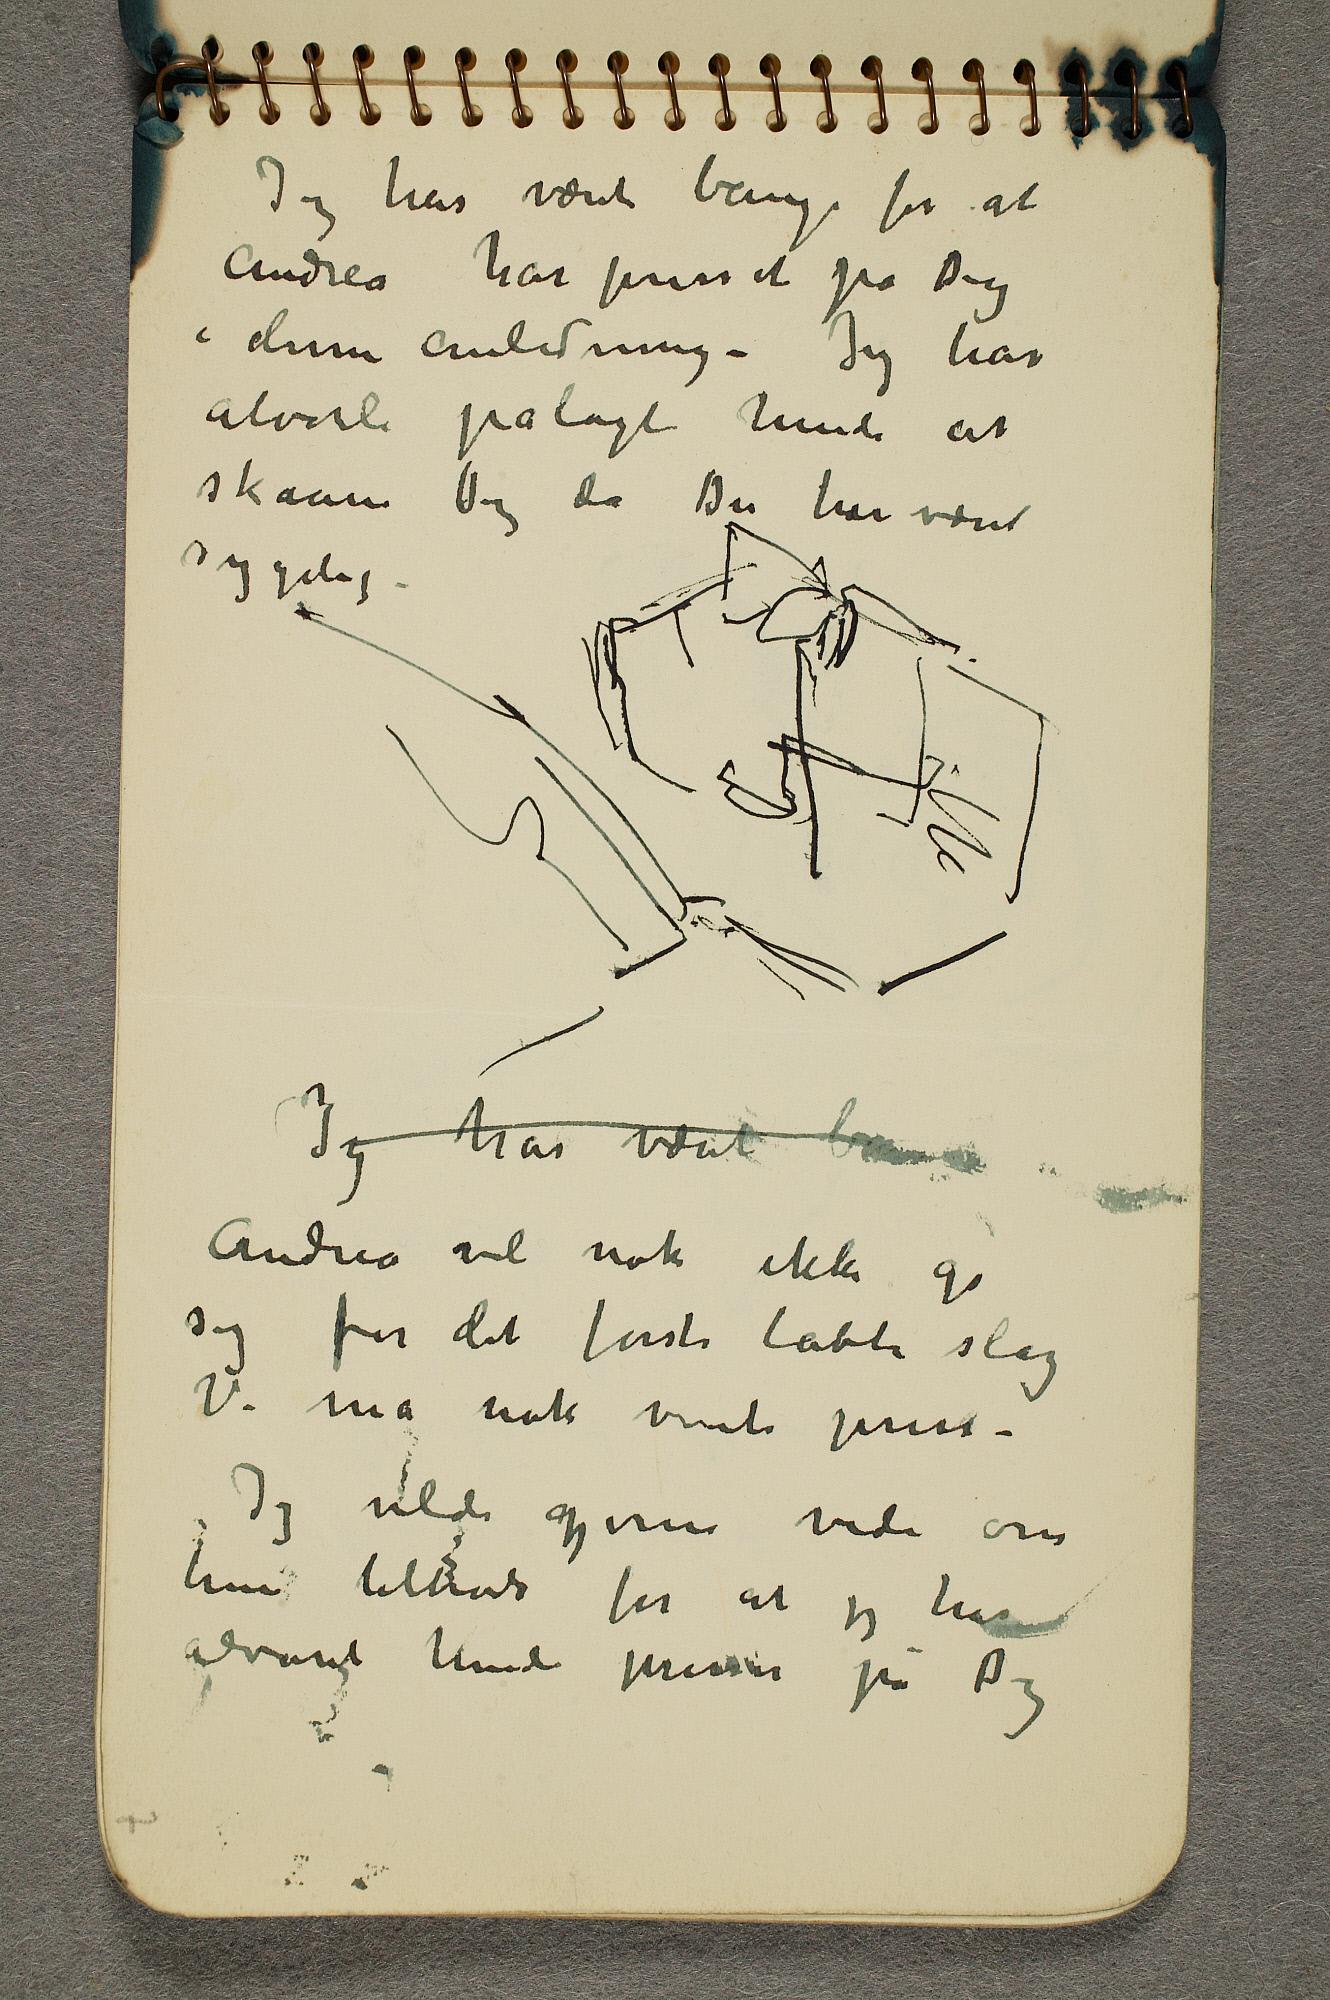 Jeg har været bange for at
Andrea har presset på Dig
i denne anledning – Jeg har
alvorli pålagt hende at
skaane Dig da Du har været
sygelig –
Jeg har været ban
Andrea vil nok ikke gi
sig for det første tabte slag
Vi må nok vente press –
Jeg vilde gjerne vide om
hun tiltrods for at jeg har
advaret hende presser på Dig